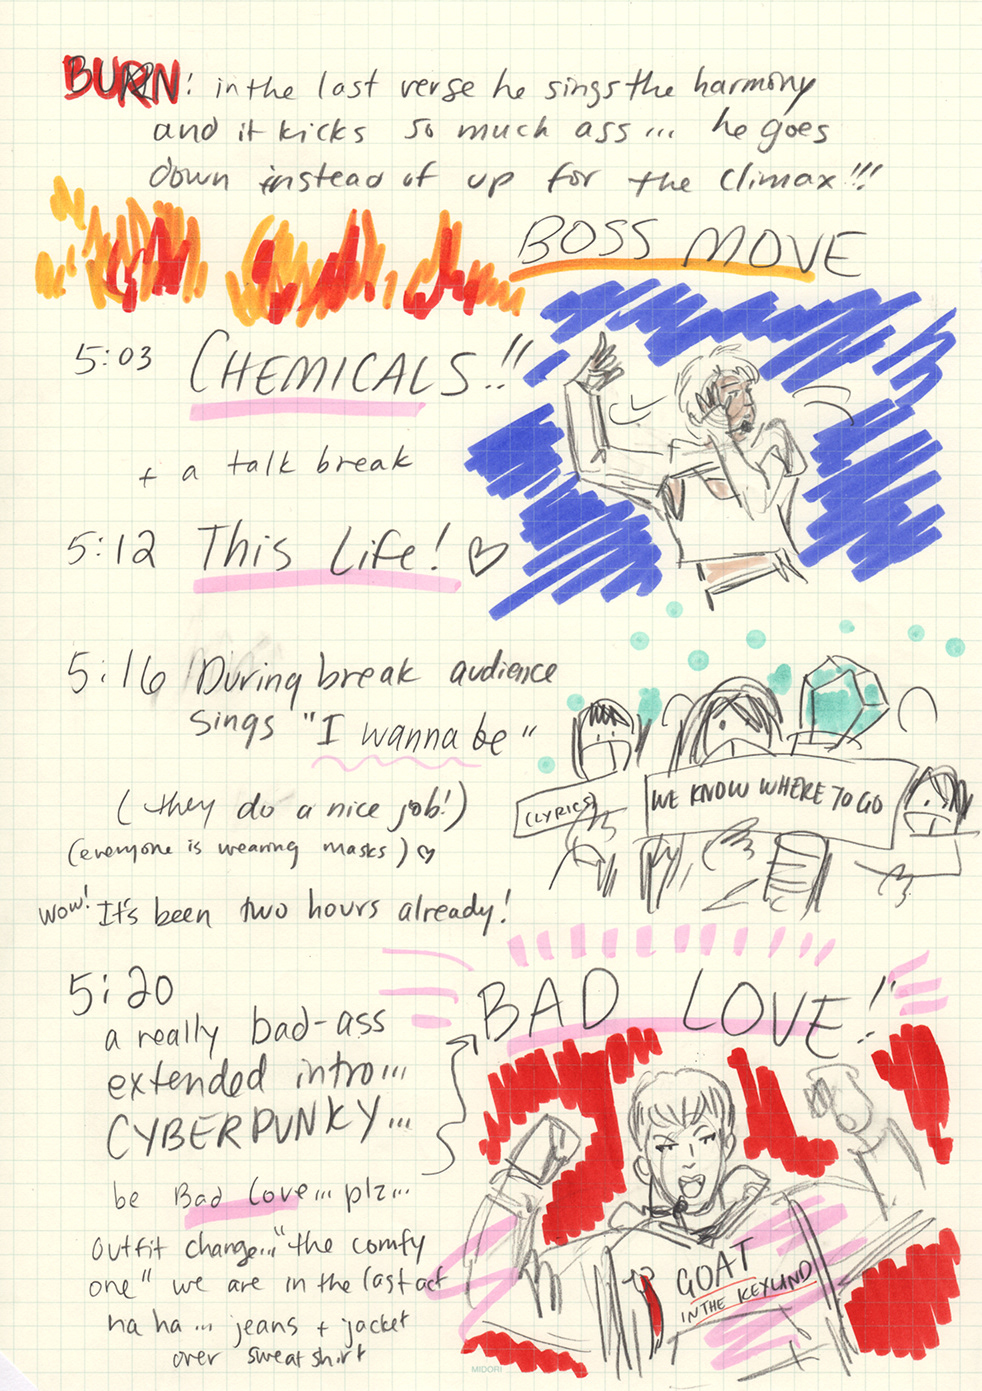 BURN: in the last verse he sings the harmony
and it kicks so much ass... he goes
down instead of up for the climax!!!
BOSS MOVE
5:03 CHEMICALS!!
+ a talk break
5:12 This Life! ♡
5:16 During break audience
sings "I wanna be"
(they do a nice job!)
(everyone is wearing masks) ♡
(LYRICS)
WE KNOW WHERE TO GO
wow! It's been two hours already!
5:20
BAD LOVE!
a really bad-ass
extended intro...
CYBERPUNKY...
be Bad Love... plz...
outfit change... "the comfy
one" we are in the last act
ha ha... jeans + jacket
over sweatshirt
GOAT
IN THE KEYLAND
MIDORI